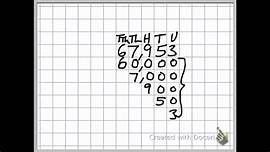 TTh Th H T U
67,953
60,000
7,000
900
50
3
Created with Doceri